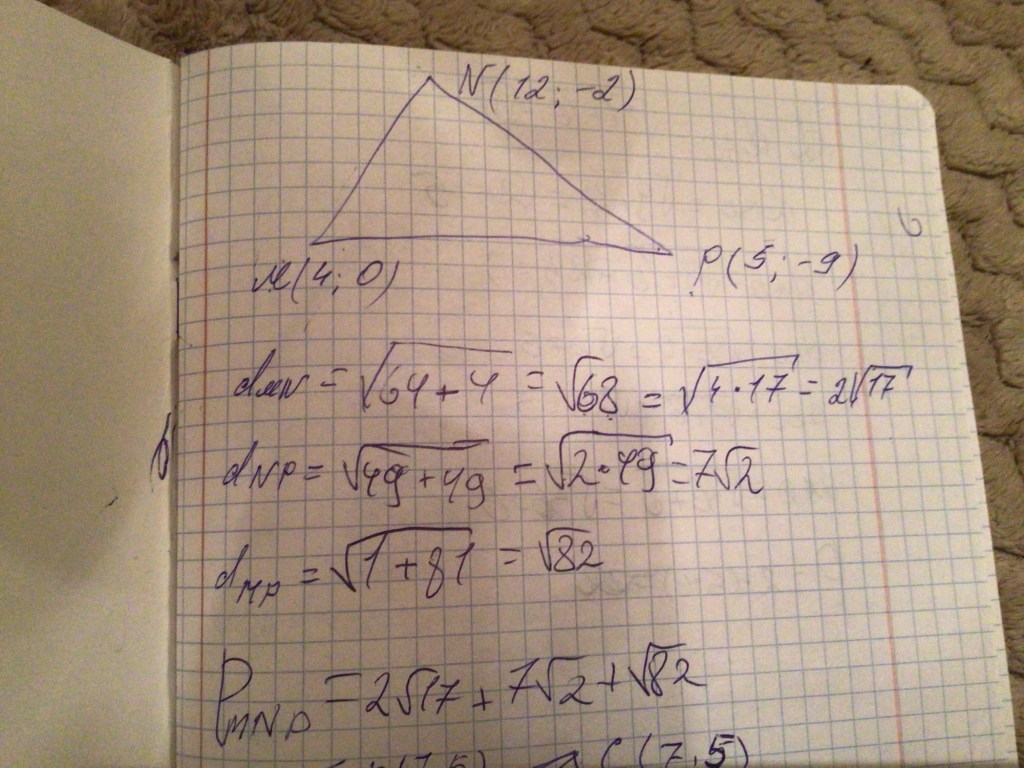 N(12; -2)
M(4; 0)
P(5; -9)
d_MN = √(64+4) = √68 = √(4·17) = 2√17
d_NP = √(49+49) = √(2·49) = 7√2
d_MP = √(1+81) = √82
P_MNP = 2√17 + 7√2 + √82
(7,5)